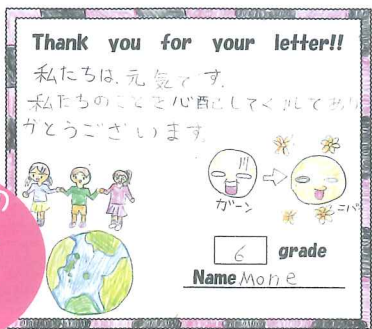 Thank you for your letter!!
私たちは、元気です。
私たちのことを心配してくれてあり
がとうございます
ガーン
ニパ
6 grade
Name Mone